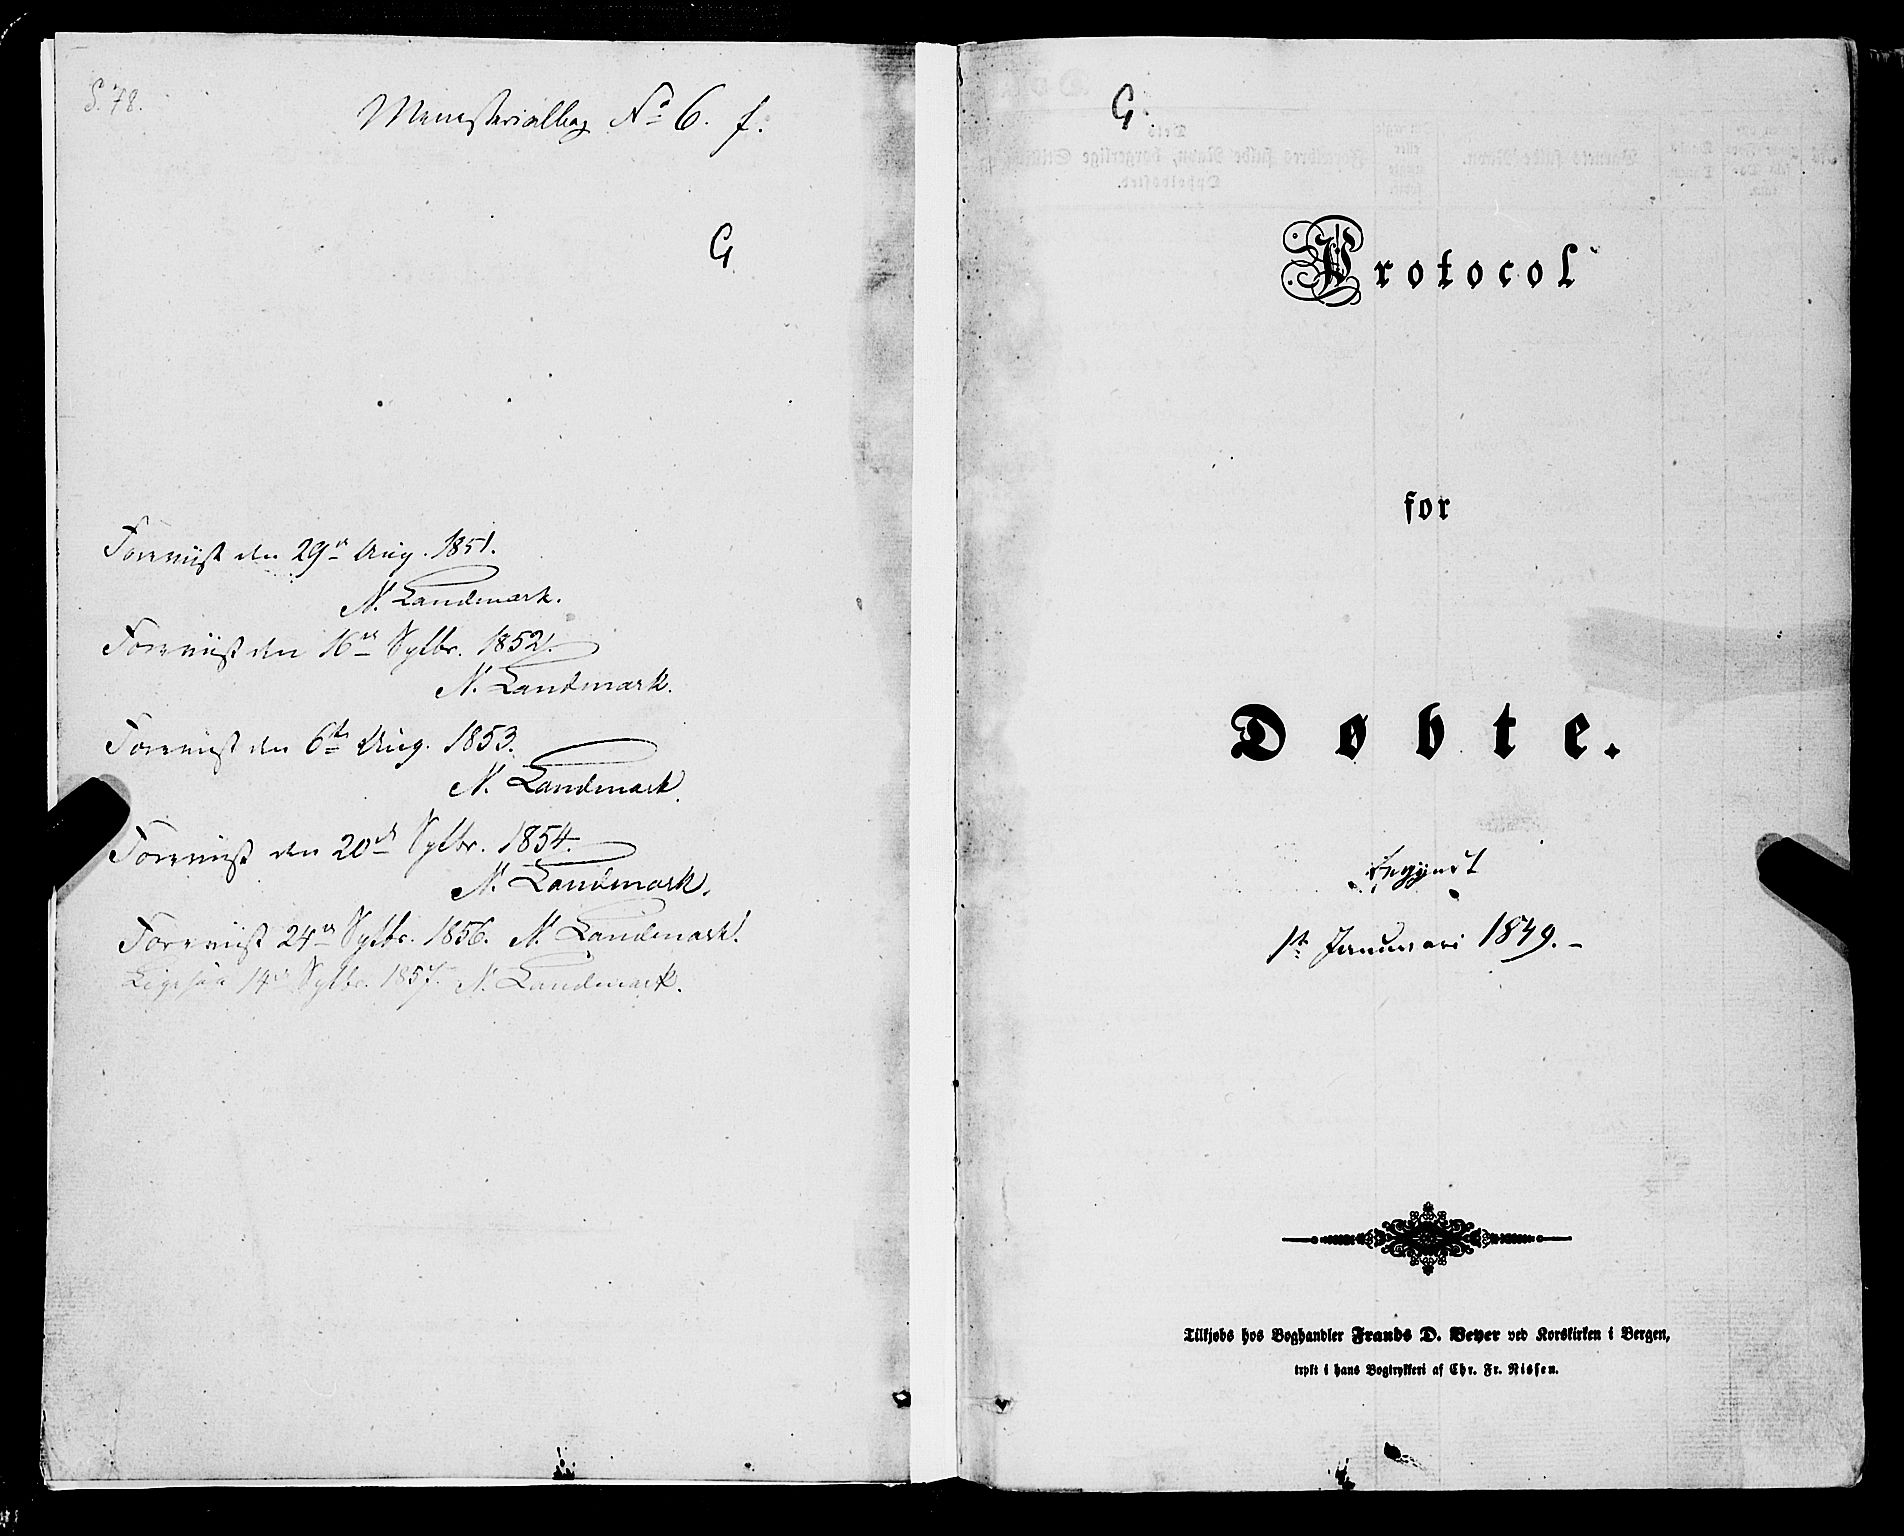 S. 78.
Ministerialbog No 6. f.
G.
Foreviist den 29de Aug. 1851.
N. Landmark.
Foreviist den 16de Sptbr. 1852.
N. Landmark.
Foreviist den 6te Aug. 1853.
N. Landmark.
Foreviist den 20de Sptbr. 1854.
N. Landmark.
Foreviist 24de Sptbr. 1856. N. Landmark.
Ligesaa 14de Sptbr. 1857. N. Landmark.
G.
Protocol
for
Døbte.
begyndt
1ste Januari 1849.-
Tilkjøbs hos Boghandler Frands D. Beyer ved Korskirken i Bergen,
trykt i hans Bogtrykkeri af Chr. Fr. Nissen.